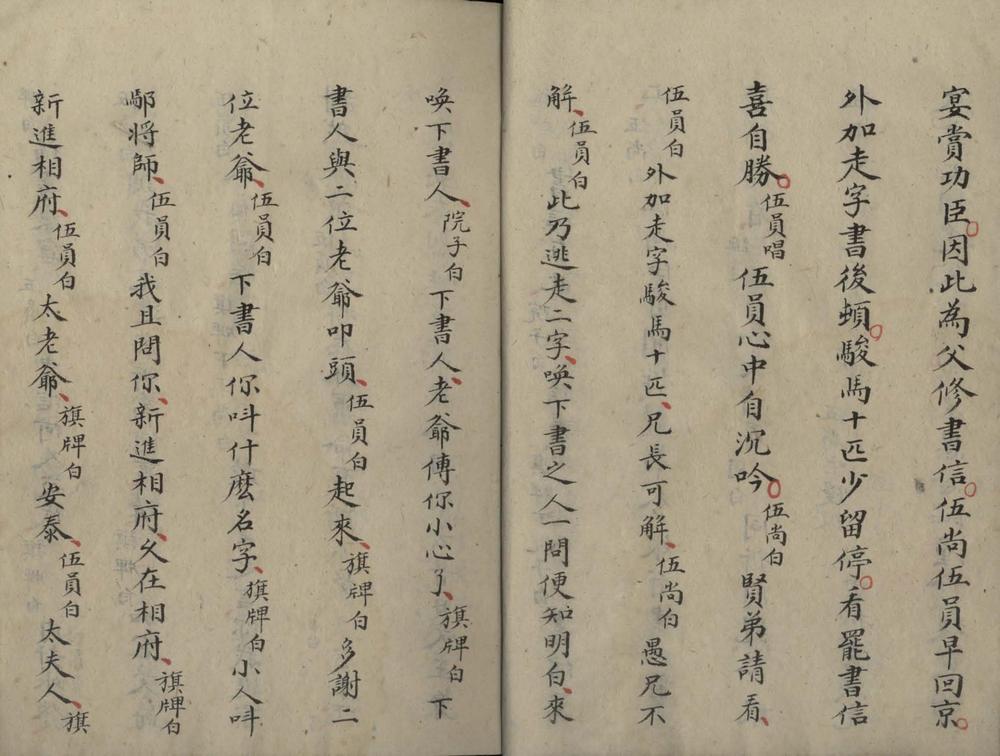 宴賞功臣因此為父修書信伍尚伍員早回京
外加走字書後頓駿馬十匹少留停看罷書信
喜自勝伍員唱伍員心中自沉吟伍尚白賢弟請看
伍員白外加走字駿馬十匹兄長可解伍尚白愚兄不
解伍員白此乃逃走二字喚下書之人一問便知明白來
喚下書人院子白下書人老爺傳你小心了旗牌白下
書人與二位老爺叩頭伍員白起來旗牌白多謝二
位老爺伍員白下書人你呌什麽名字旗牌白小人呌
鄢將師伍員白我且問你新進相府久在相府旗牌白
新進相府伍員白太老爺旗牌白安泰伍員白太夫人旗